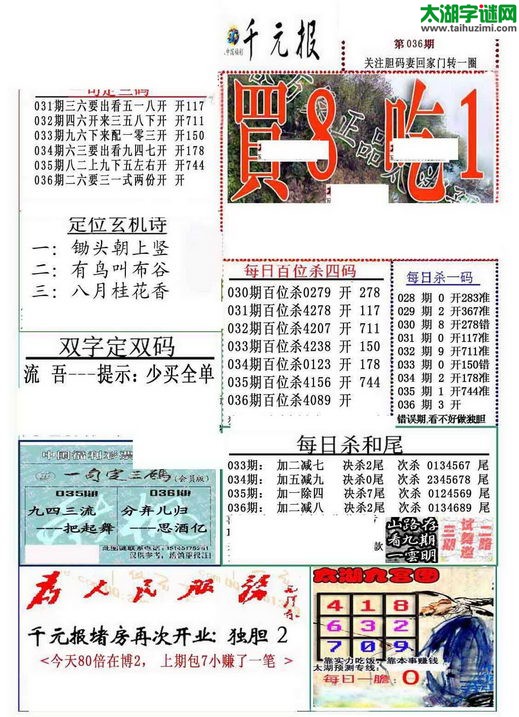 太湖字谜网
www.taihuzimi.com
千元报
第036期
关注胆码妻回家门转一圈
031期三六要出看五一八开 开117
032期四六开来三五八下开 开711
033期九六下来配一零三开 开150
034期六三要出看九四七开 开178
035期八二上九下五左右开 开744
036期二六要三一式两份开 开
買8 吃1
定位玄机诗
一: 锄头朝上竖
二: 有鸟叫布谷
三: 八月桂花香
每日百位杀四码
030期百位杀0279 开 278
031期百位杀4278 开 117
032期百位杀4207 开 711
033期百位杀4238 开 150
034期百位杀0123 开 178
035期百位杀4156 开 744
036期百位杀4089 开
每日杀一码
028 期 0 开283准
029 期 2 开367准
030 期 8 开278错
031 期 0 开117准
032 期 9 开711准
033 期 0 开150错
034 期 2 开178准
035 期 1 开744准
036 期 3 开
错误期,看不好做独胆
双字定双码
流 吾---提示: 少买全单
每日杀和尾
033期: 加二减七 决杀2尾 次杀 0134567 尾
034期: 加五减九 决杀0尾 次杀 2345678 尾
035期: 加一除四 决杀7尾 次杀 0124569 尾
036期: 加二减八 决杀2尾 次杀 0134689 尾
中国福利彩票
一句定三码(会员版)
035期
九四三流
---把起舞
036期
分弃儿归
---思酒亿
仅供参考
款
山路存
看九期
一雲明
三期
试舞遊
二路
为人民服务
千元报堵房再次开业: 独胆 2
<今天80倍在博2, 上期包7小赚了一笔 >
太湖九宫图
4 1 8
6 3 2
7 0 9
靠实力吃饭,靠本事赚钱
太湖预测专线:
每日一胆: 0